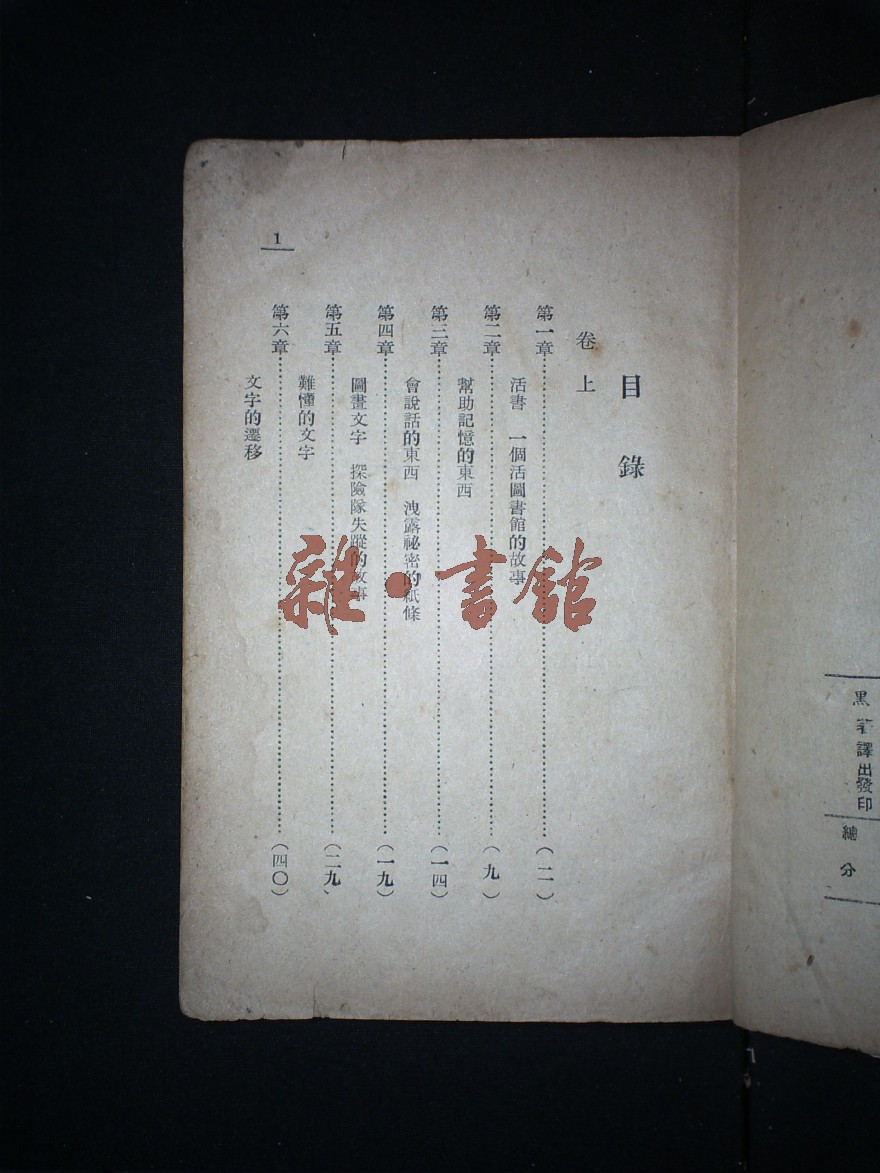 黑
著譯出發印
總分
目錄
卷上
第一章……(二)
活書 一個活圖書館的故事
第二章……(九)
幫助記憶的東西
第三章……(一四)
會說話的東西 洩露祕密的紙條
第四章……(一九)
圖畫文字 探險隊失蹤的故事
第五章……(二九)
難懂的文字
第六章……(四〇)
文字的遷移
1
雜·書館